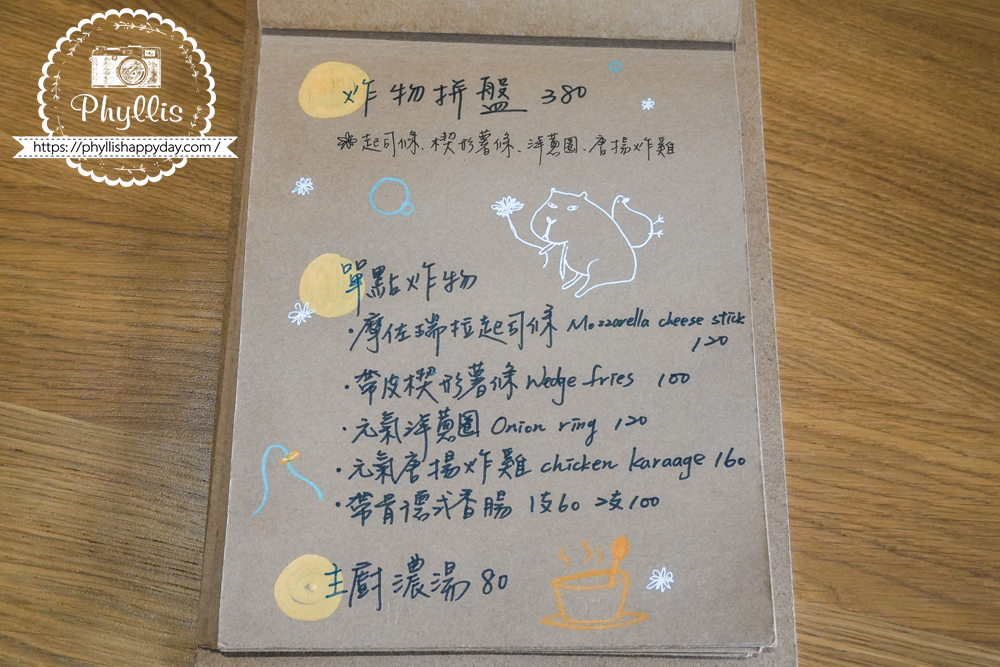 Phyllis
https://phyllishappyday.com /
炸物拼盤 380
起司條、楔形薯條、洋蔥圈、唐揚炸雞
單點炸物
・摩佐瑞拉起司條 Mozzarella cheese stick
120
・帶皮楔形薯條 Wedge fries 100
・元氣洋蔥圈 Onion ring 120
・元氣唐揚炸雞 chicken karaage 160
・帶骨德式香腸 1支60 2支100
主廚濃湯 80